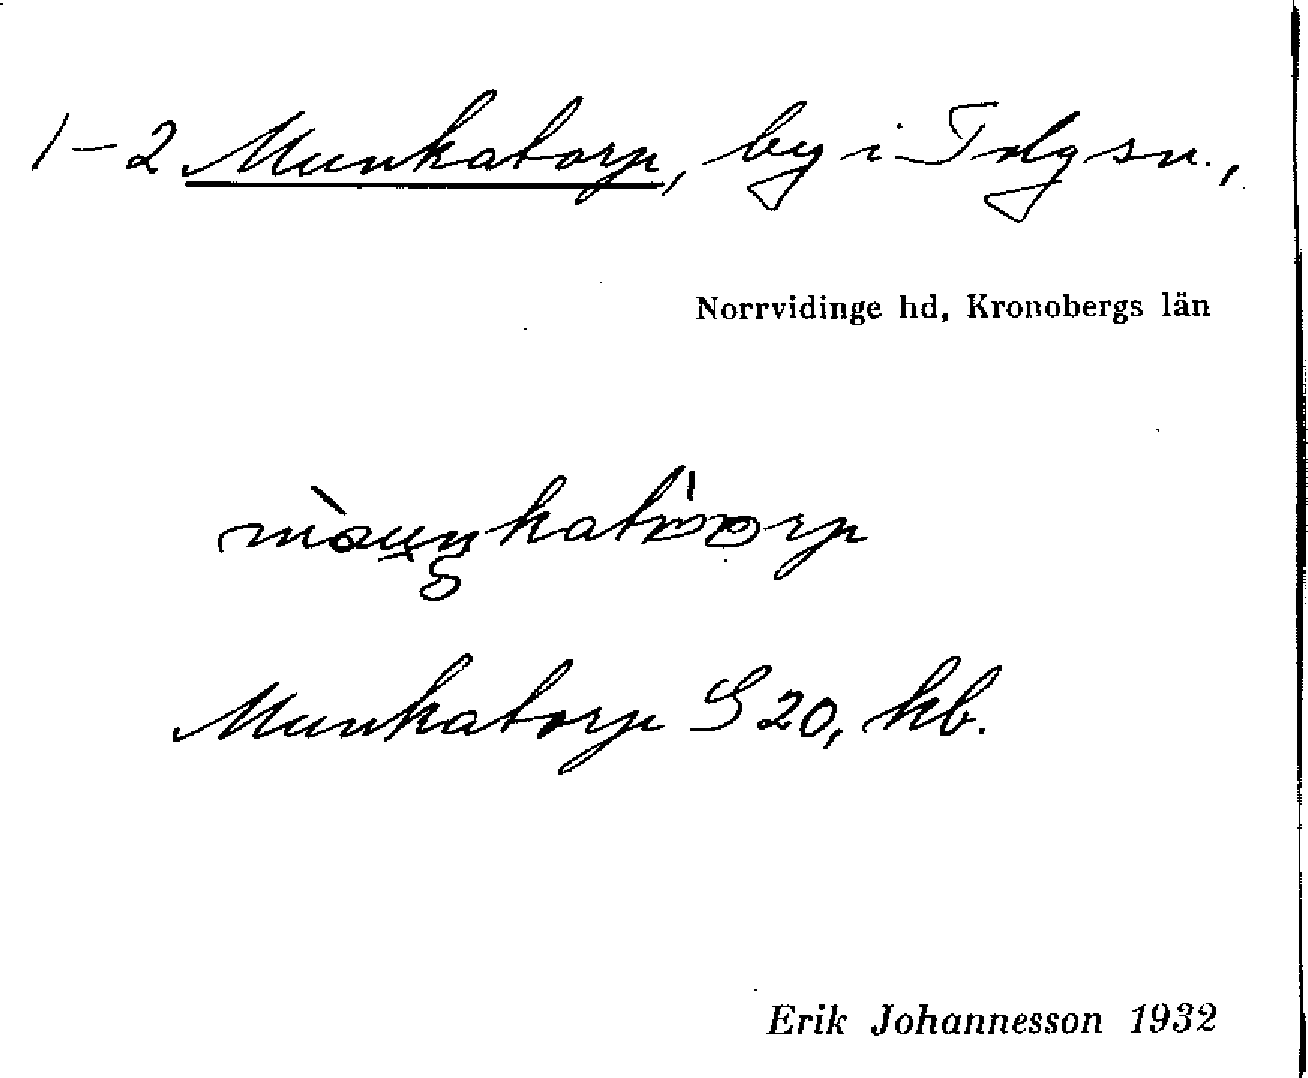 1-2 Munkatorp, by i Tolg sn.,
Norrvidinge hd, Kronobergs län
Munkatorp S 20, kb.
Erik Johannesson 1932